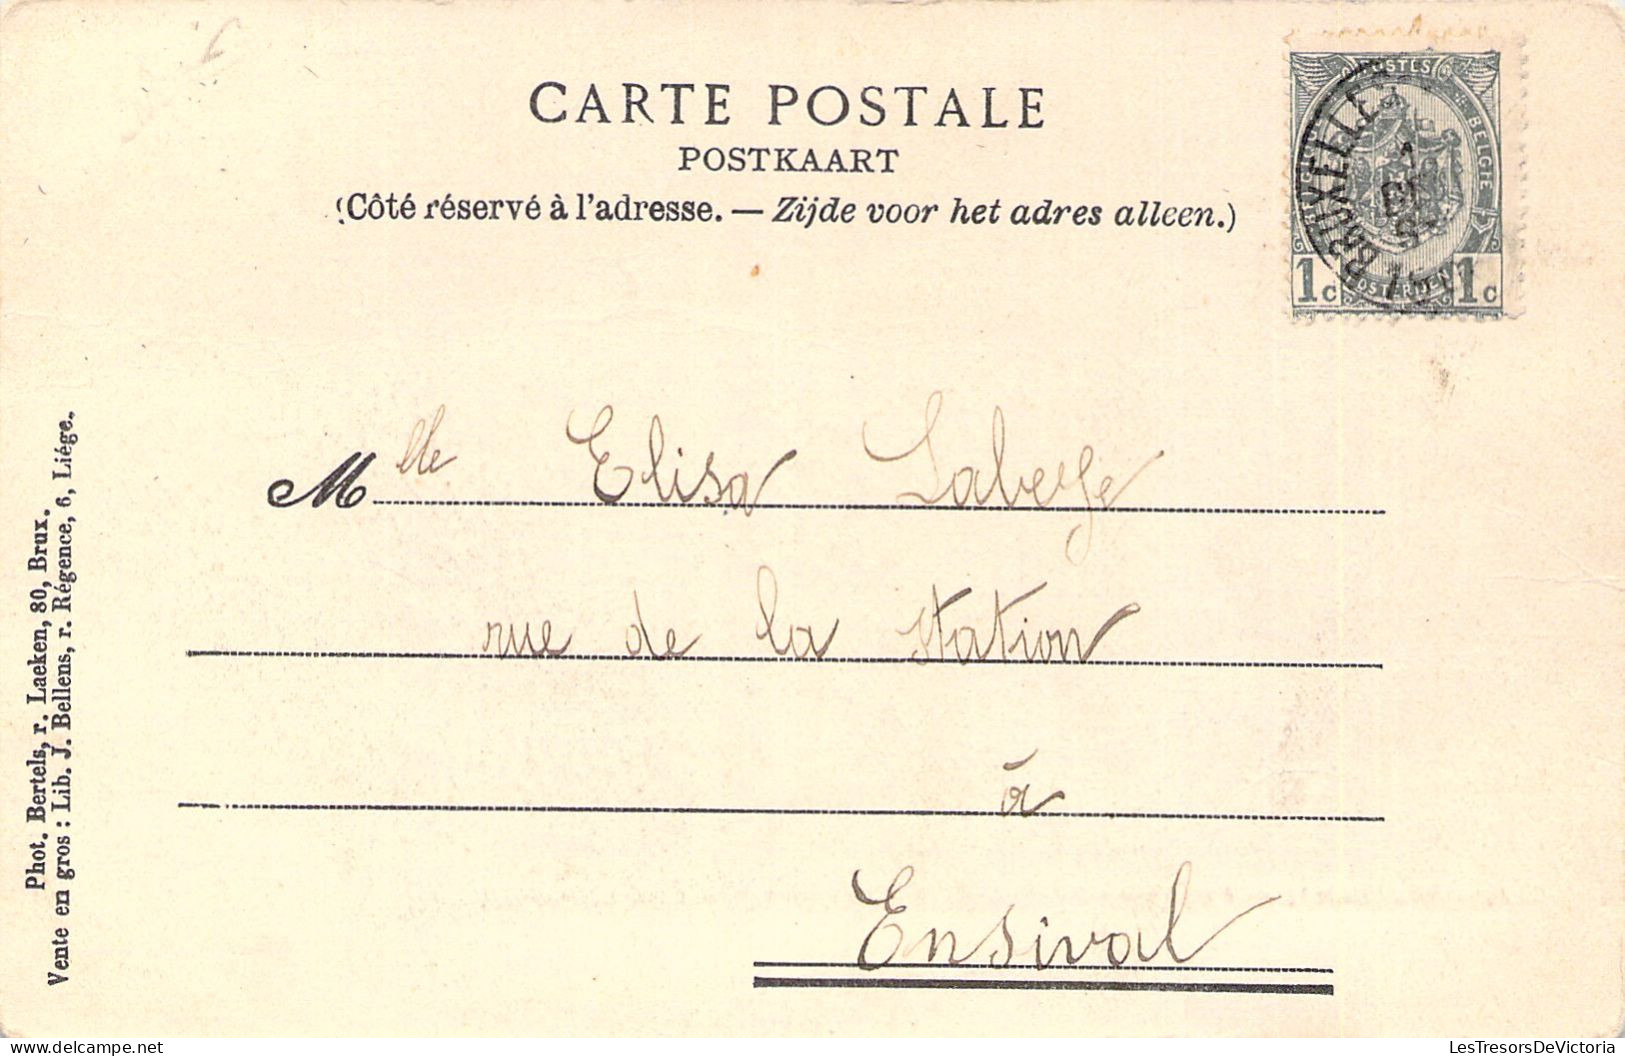 CARTE POSTALE
POSTKAART
(Côté réservé à l'adresse. — Zijde voor het adres alleen.)
POSTES
BELGIE
BRUXELLES
1c
POSTERIJEN
1c
Mlle Elisa Labeye
rue de la Station
à
Ensival
Phot. Bertels, r. Laeken, 80, Brux.
Vente en gros : Lib. J. Bellens, r. Régence, 6, Liége.
LesTresorsDeVictoria